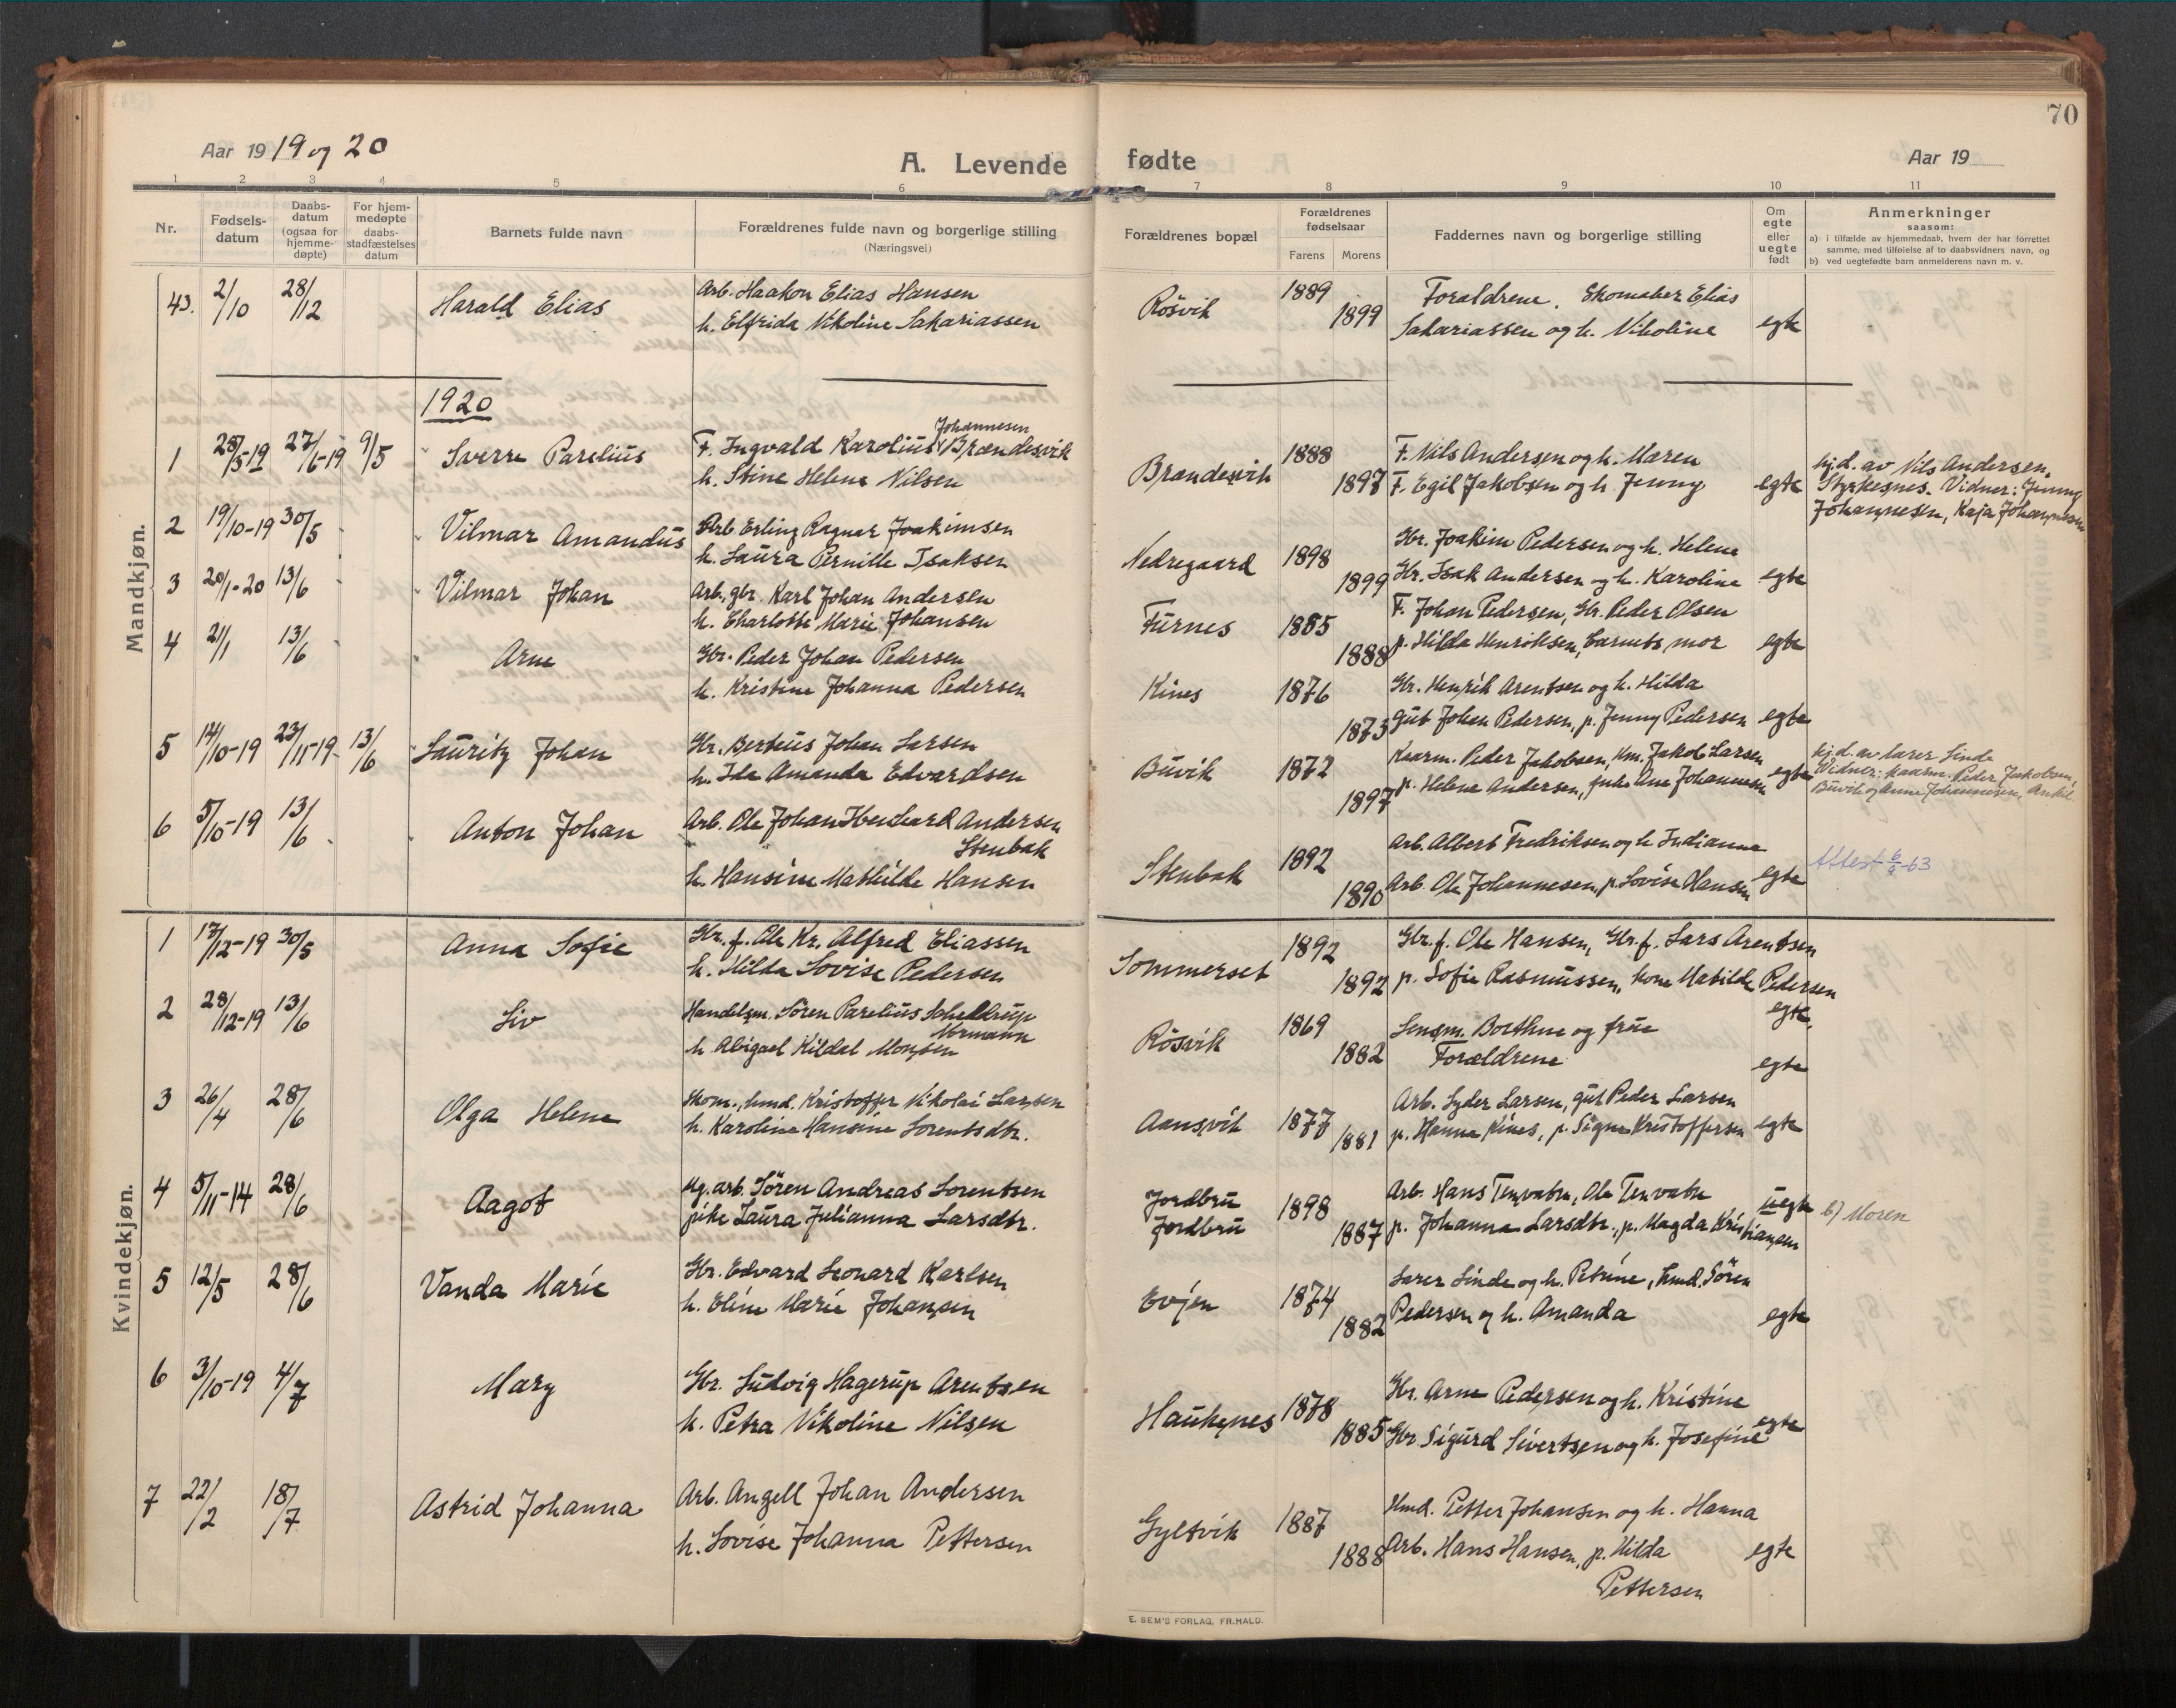 70
Aar 19 19 og 20
A. Levende fødte
Aar 19
1 2 3 4 5 6 7 8 9 10 11
Nr.
Fødsels-
datum
Daabs-
datum
(ogsaa for
hjemme-
døpte)
For hjem-
medøpte
daabs-
stadfæstelses
datum
Barnets fulde navn
Forældrenes fulde navn og borgerlige stilling
(Næringsvei)
Forældrenes bopæl
Forældrenes
fødselsaar
Farens Morens
Faddernes navn og borgerlige stilling
Om
egte
eller
uegte
født
Anmerkninger
saasom:
a) i tilfælde av hjemmedaab, hvem der har forrettet
samme, med tilføielse af to daabsvidners navn, og
b) ved uegtefødte barn anmelderens navn m. v.
43. 2/10 28/12 Harald Elias
Arb. Haakon Elias Hansen
h. Elfrida Nikoline Sakariassen
Rösvik 1889 1899
Forældrene. Skomaker Elias
Sakariassen og h. Nikoline egte
1920
Mandkjøn.
1 28/5-19 27/6-19 9/5 Sverre Parelius
Johannesen
F. Ingvald Karolius Brændesvik
h. Stine Helene Nilsen
Brændesvik 1888 1897
F. Nils Andersen og h. Maren
F. Egil Jakobsen og h. Jenny egte
hj.d. av Nils Andersen,
Styrkesnes. Vidner: Jenny
Johannesen, Kaja Johannesen
2 19/10-19 30/5 Vilmar Amandus
Arb. Erling Ragnar Joakimsen
h. Laura Pernille Isaksen
Nedregaard 1898 1899
Gbr. Joakim Pedersen og h. Helene
Gbr. Isak Andersen og h. Karoline egte
3 20/1-20 13/6 Vilmar Johan
Arb., gbr. Karl Johan Andersen
h. Charlotte Marie Johansen
Furnes 1885 1888
F. Johan Pedersen, Gbr. Peder Olsen
p. Hilda Henriksen, barnets mor egte
4 21/1 13/6 Arne
Gbr. Peder Johan Pedersen
h. Kristine Johanna Pedersen
Kines 1876 1873
Gbr. Henrik Arentsen og h. Hilda
gut Johan Pedersen, p. Jenny Pedersen egte
5 14/10-19 23/11-19 13/6 Lauritz Johan
Gbr. Berteus Johan Larsen
h. Ida Amanda Edvardsen
Buvik 1872 1897
Kaarm. Peder Jakobsen, Km. Jakob Larsen
p. Helene Andersen, enke Ane Johannesen egte
hj.d. av lærer Linde
Vidner: kaarm. Peder Jakobsen,
Buvik og Anne Johannesen,
6 5/10-19 13/6 Anton Johan
Arb. Ole Johan Iberhard Andersen
Stenbak
h. Hansine Mathilde Hansen
Stenbak 1892 1890
Arb. Albert Fredriksen og h. Indianna
Arb. Ole Johannesen, p. Lovise Hansen egte
Attest 6/2-63
Kvindekjøn.
1 17/12-19 30/5 Anna Sofie
Gbr. f. Ole Kr. Alfred Eliassen
h. Hilda Lovise Pedersen
Sommerset 1892 1892
Gbr. f. Ole Hansen, Gbr. f. Lars Arentsen
p. Sofie Rasmussen, kone Matilde Pedersen
egte,
2 28/12-19 13/6 Liv
Handelsm. Sören Parelius Scheldrup
Normann
h. Abigael Kildal Monsen
Rösvik 1869 1882
Lensm. Boethne og frue
Forældrene egte
3 26/4 28/6 Olga Helene
Skom., hmd. Kristoffer Nikolai Larsen
h. Karoline Hansine Lorentsdtr.
Aansvik 1877 1881
Arb. Lyder Larsen, gut Peder Larsen
p. Hanna Kines, p. Signe Kristoffersen egte
4 5/11-14 28/6 Aagot
Ug. arb. Sören Andreas Lorentsen
pike Laura Julianna Larsdtr.
Jordbru
Jordbru
1898 1887
Arb. Hans Tenvatn, Ole Tenvatn
p. Johanna Larsdtr., p. Magda Kristiansen
uegte b) Moren
5 12/5 28/6 Vanda Marie
Gbr. Edvard Leonard Karlsen
h. Eline Marie Johansen
Evjen 1874 1882
Lærer Linde og h. Petrine, hmd. Sören
Pedersen og h. Amanda egte
6 3/10-19 4/7 Mary
Gbr. Ludvig Hagerup Arentsen
h. Petra Nikoline Nilsen
Haukenes 1878 1885
Gbr. Arne Pedersen og h. Kristine
Gbr. Sigurd Sivertsen og h. Josefine egte
7 22/2 18/7 Astrid Johanna
Arb. Angell Johan Andersen
h. Lovise Johanna Pettersen
Gyltvik 1887 1888
Hmd. Petter Johansen og h. Hanna
Arb. Hans Hansen, p. Hilda egte
Pettersen
E. SEM'S FORLAG, FR.HALD.